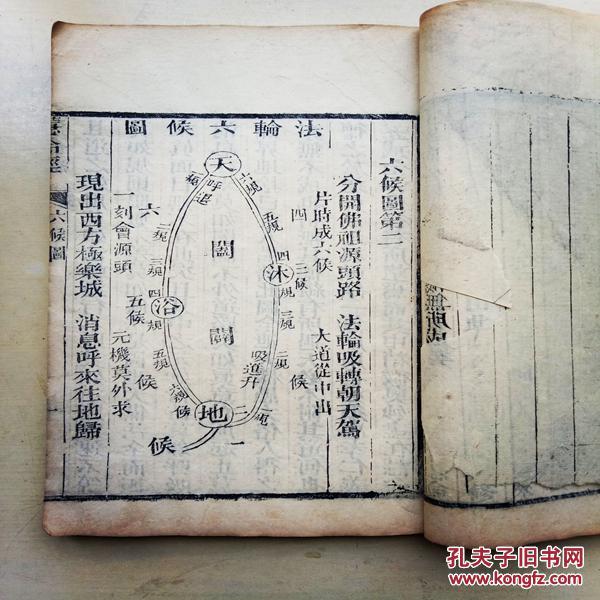 法輪六候圖
六候圖第二
分開佛祖源頭路 法輪吸轉朝天駕
現出西方極樂城 消息呼來往地歸
片時成六候
大道從中出
一刻會源頭
元機莫外求
天
呼退
六規
五規
四規
三規
二規
一規
沐
闔
闢
浴
吸進升
地
一規
二規
三規
四規
五規
六規
一
二候
三候
四候
五候
六候
慧命經
六候圖
無所成
孔夫子旧书网
www.kongfz.com